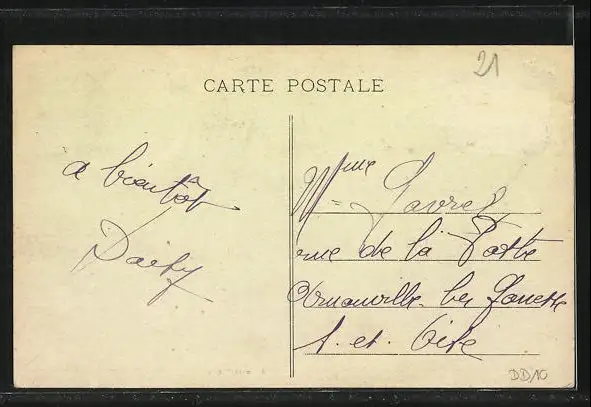 21
CARTE POSTALE
a bientôt
Daisy
Mme
rue de la Poste
Arnouville les Gonesse
S. et Oise
DD/10